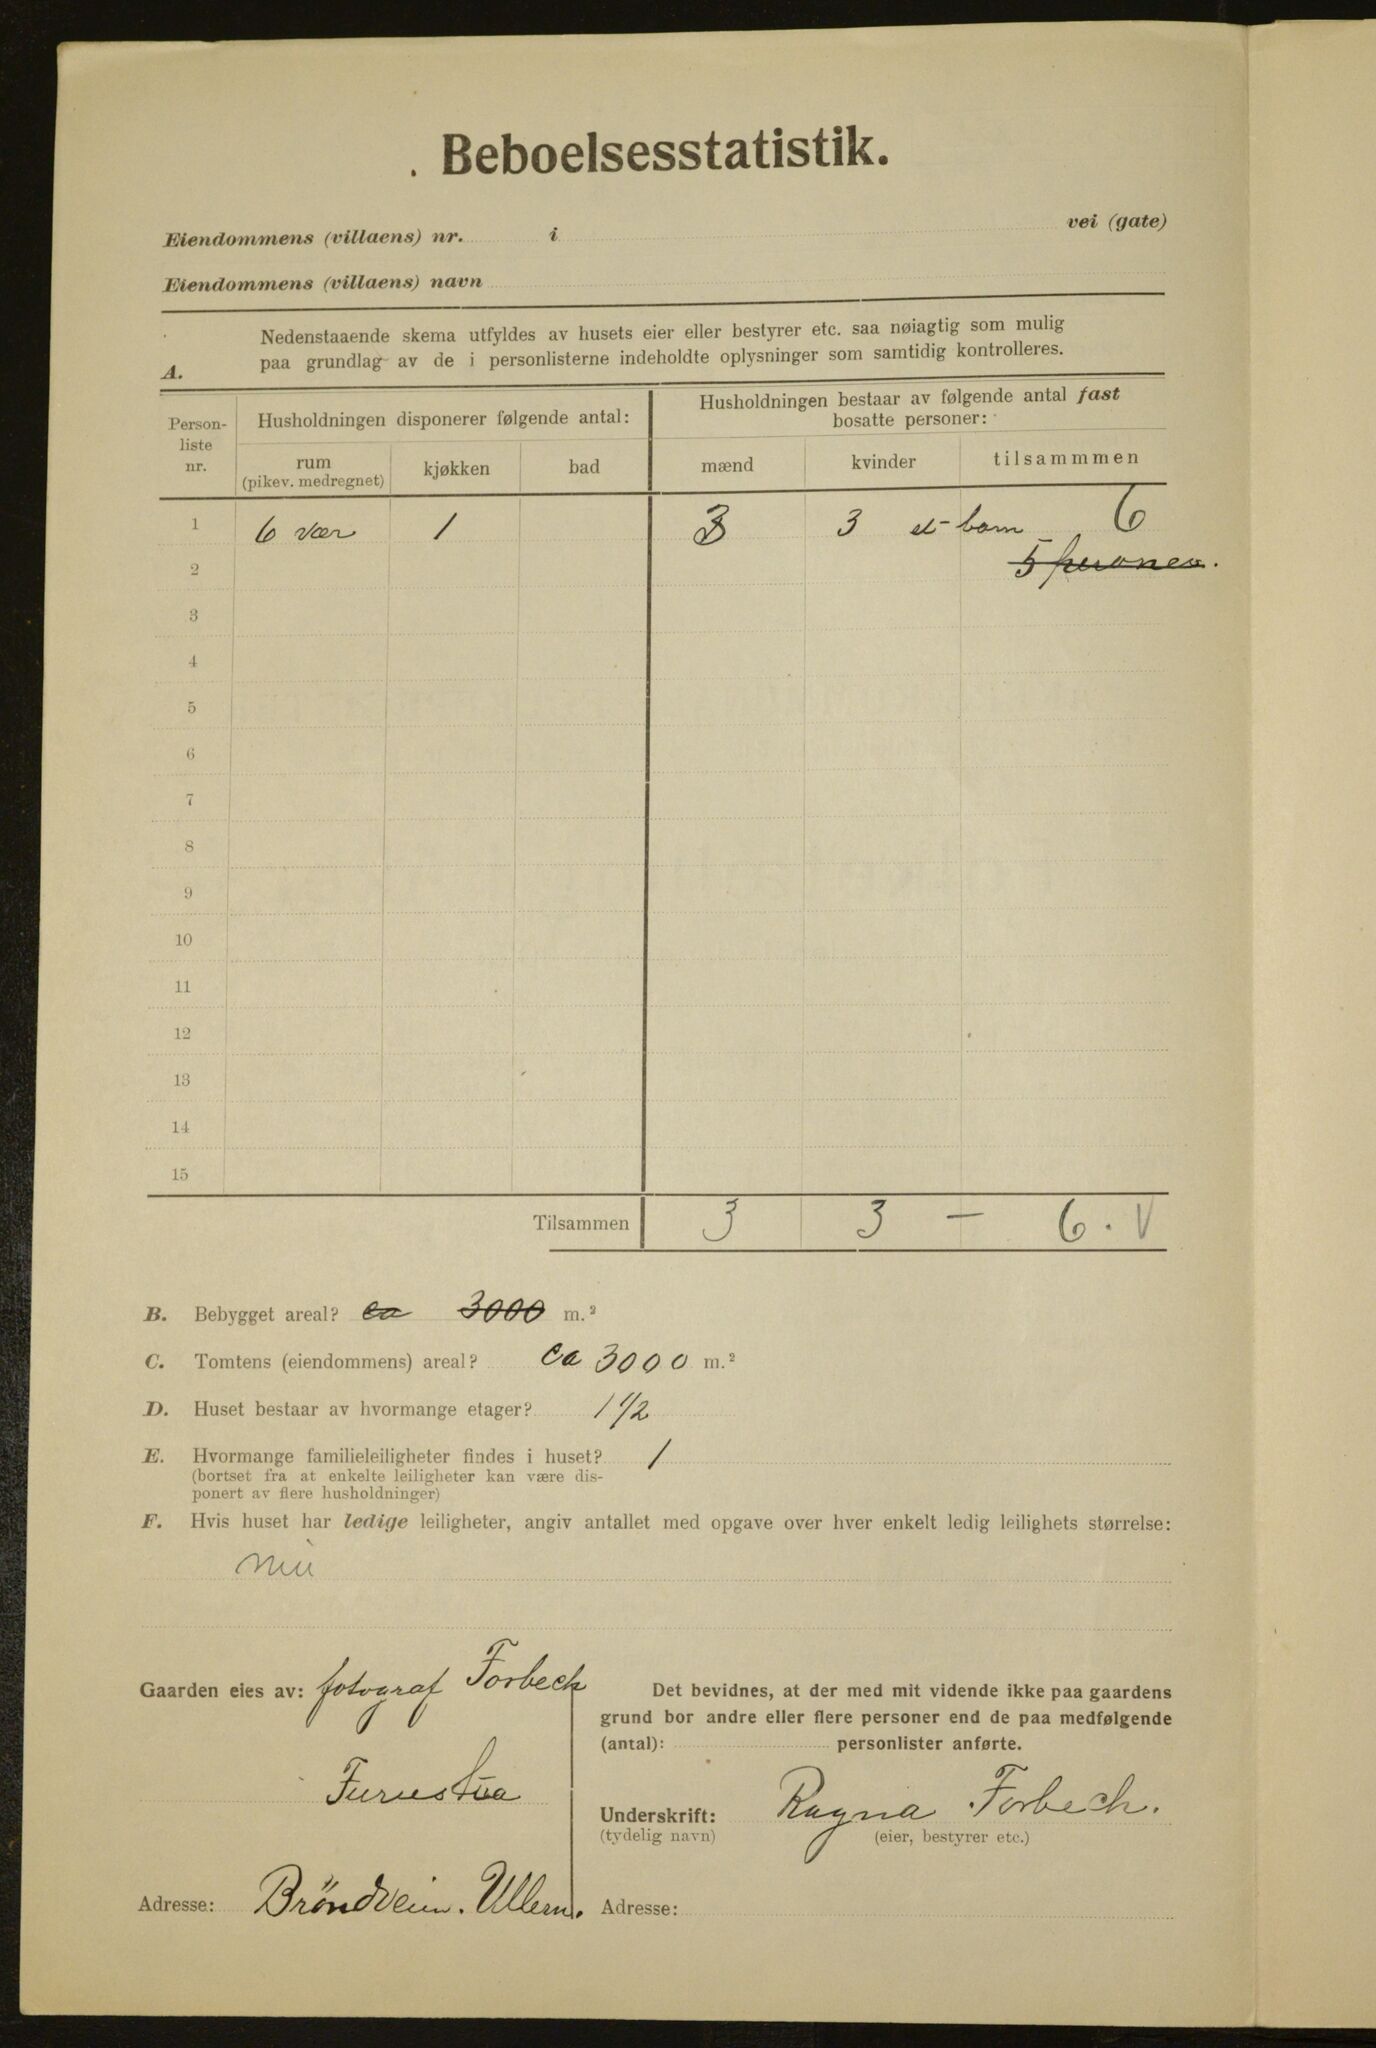 Beboelsesstatistik.
Eiendommens (villaens) nr. i vei (gate)
Eiendommens (villaens) navn
A. Nedenstaaende skema utfyldes av husets eier eller bestyrer etc. saa nøiagtig som mulig
paa grundlag av de i personlisterne indeholdte oplysninger som samtidig kontrolleres.
Person-
liste
nr.
Husholdningen disponerer følgende antal:
Husholdningen bestaar av følgende antal fast
bosatte personer:
rum
(pikev. medregnet)
kjøkken
bad
mænd
kvinder
tilsammmen
1 6 vær 1 3 3 et barn 6
2 5 personer.
3
4
5
6
7
8
9
10
11
12
13
14
15
Tilsammen 3 3 — 6. V
B. Bebygget areal? ca 3000 m.²
C. Tomtens (eiendommens) areal? ca 3000 m.²
D. Huset bestaar av hvormange etager? 1 1/2
E. Hvormange familieleiligheter findes i huset? 1
(bortset fra at enkelte leiligheter kan være dis-
ponert av flere husholdninger)
F. Hvis huset har ledige leiligheter, angiv antallet med opgave over hver enkelt ledig leilighets størrelse:
Gaarden eies av: fotograf Forbech
Furustua
Adresse: Bröndveien. Ullern.
Det bevidnes, at der med mit vidende ikke paa gaardens
grund bor andre eller flere personer end de paa medfølgende
(antal): personlister anførte.
Underskrift: Ragna Forbech.
(tydelig navn) (eier, bestyrer etc.)
Adresse: